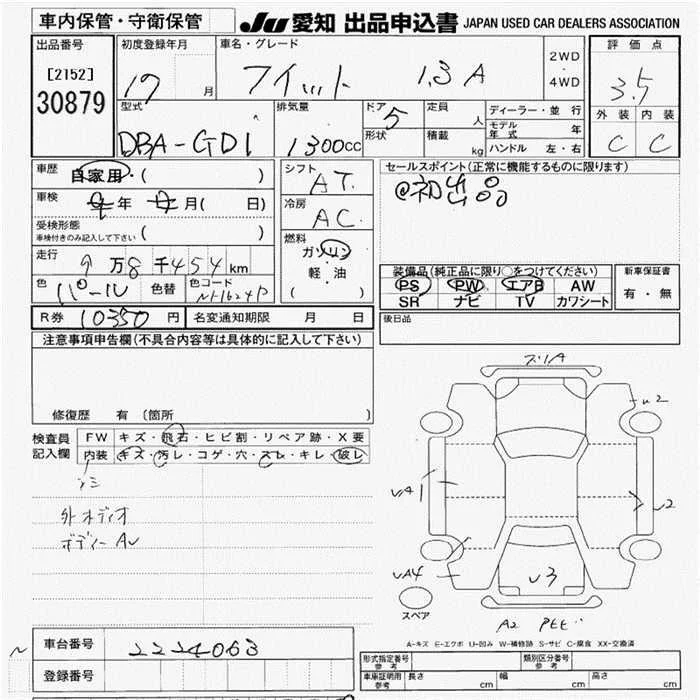 車内保管・守衛保管
JU 愛知 出品申込書 JAPAN USED CAR DEALERS ASSOCIATION
出品番号
[2152]
30879
初度登録年月
17 月
車名・グレード
フィット 1.3 A
2WD
・
4WD
評価点
3.5
外装 内装
C C
型式
DBA-GD1
排気量
1300cc
ドア 5
形状
定員 人
積載 kg
ディーラー・並行
モデル年式 年
ハンドル 左・右
車歴 自家用・( )
車検 年 月( 日)
受検形態
車検付きのみ記入して下さい ( )
走行 9 万 8 千 454 km
色 パール 色替 色コード NH624P
シフト
AT
冷房
AC
燃料
ガソリン
軽・油
( )
セールスポイント(正常に機能するものに限ります)
@初出品
装備品(純正品に限り○をつけてください)
PS PW エアB AW
SR ナビ TV カワシート
新車保証書
有・無
R券 10350 円 名変通知期限 月 日
後日品
注意事項申告欄(不具合内容等は具体的に記入して下さい)
修復歴 有 〔箇所 〕
検査員記入欄
FW キズ・飛石・ヒビ割・リペア跡・X要
内装 キズ・汚レ・コゲ・穴・スレ・キレ・破レ
外オーディオ
ボディー AU
スリA
U2
UA1
U2
UA4
U3
スペア
A2
A-キズ E-エクボ U-凹み W-補修跡 S-サビ C-腐食 XX-交換済
車台番号 2224063
登録番号
形式指定番号 参考
類別区分番号 参考
車庫証明用 参考 長さ cm 幅 cm 高さ cm